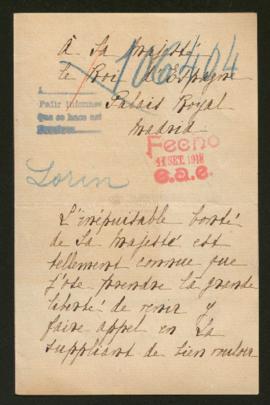 À Sa Majesté
106404
le Roi d'Espagne
1
Pedir informes
Palais Royal
Que se hace así
Madrid
Fecho
11 SET. 1918
e.a.e.
Lorin
L'inépuisable bonté
de Sa Majesté est
tellement connue que
j'ose prendre la grande
liberté de venir y
faire appel en La
suppliant de bien vouloir